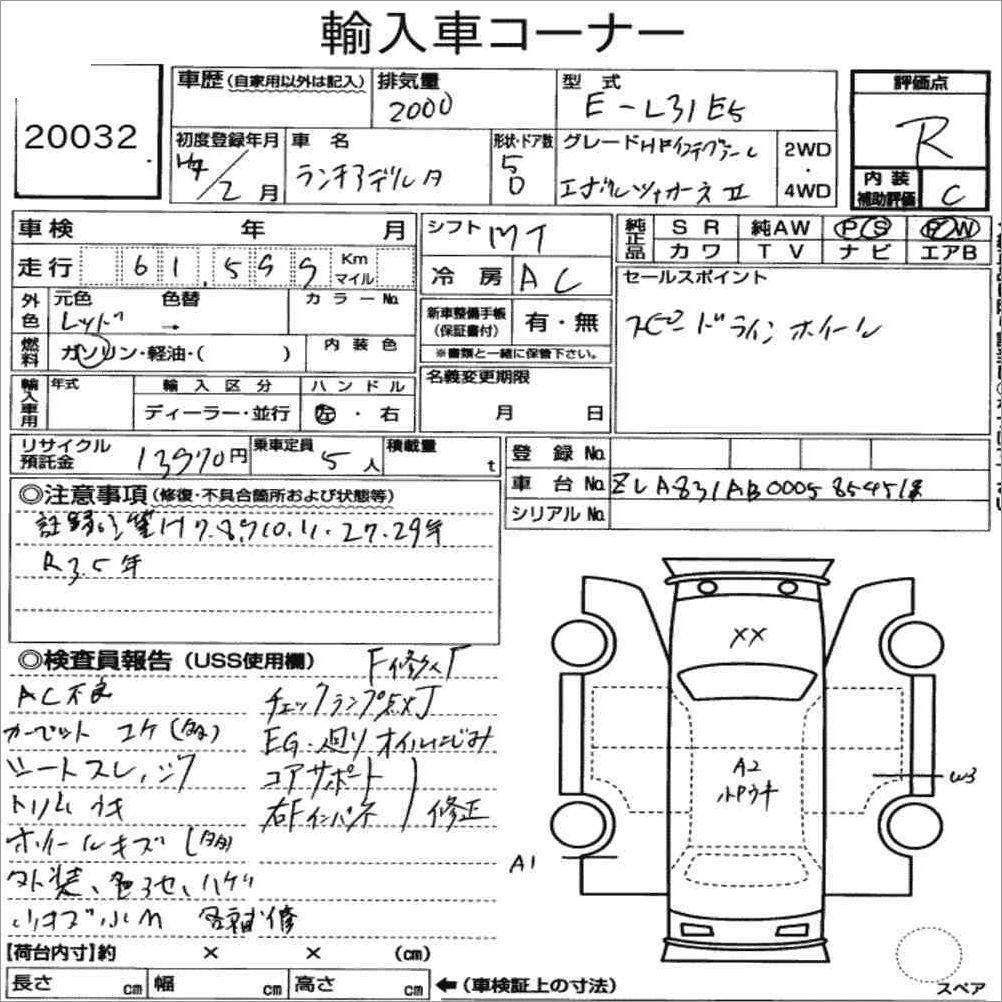 輸入車コーナー
20032
車歴(自家用以外は記入)
排気量
2000
型式
E-L31E5
評価点
R
内装補助評価
C
初度登録年月
H4/2月
車名
ランチアデルタ
形状・ドア数
5D
グレード HFインテグラーレ
エボルツィオーネ II
2WD・4WD
車検 年 月
走行 61,599 Km マイル
外色
元色 レッド
色替 →
カラーNo.
燃料
ガソリン・軽油・( )
内装色
輸入車用
年式
輸入区分
ディーラー・並行
ハンドル
左・右
シフト MT
冷房 AC
新車整備手帳(保証書付)
有・無
※書類と一緒に保管下さい。
名義変更期限
月 日
純正品
SR 純AW PS PW
カワ TV ナビ エアB
セールスポイント
スピードラインホイール
リサイクル預託金 13970円
乗車定員 5人
積載量 t
登録No.
車台No. ZLA831AB000585451
シリアルNo.
◎注意事項(修復・不具合箇所および状態等)
記録簿H7.8.9.10.11.27.29年
R3.5年
◎検査員報告(USS使用欄)
F修歴
AC不良
カーペットコゲ(多)
シートスレ、シワ
トリムウキ
ホイールキズ(多)
外装、色アセ、ハゲ
小キズ小凹 各補修
チェックランプ点灯
EG廻りオイルにじみ
コアサポート
右Fインパネ
修正
XX
A2
小Pウチ
W3
A1
スペア
【荷台内寸】約 × × (cm)
長さ cm 幅 cm 高さ cm ←(車検証上の寸法)